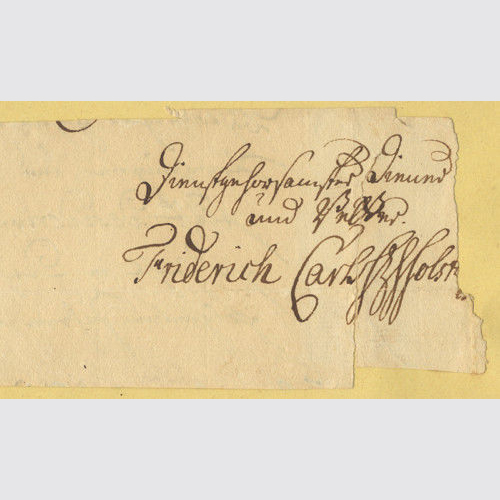 Dienstgehorsamster Diener
und Vetter.
Friderich Carl HzHolst